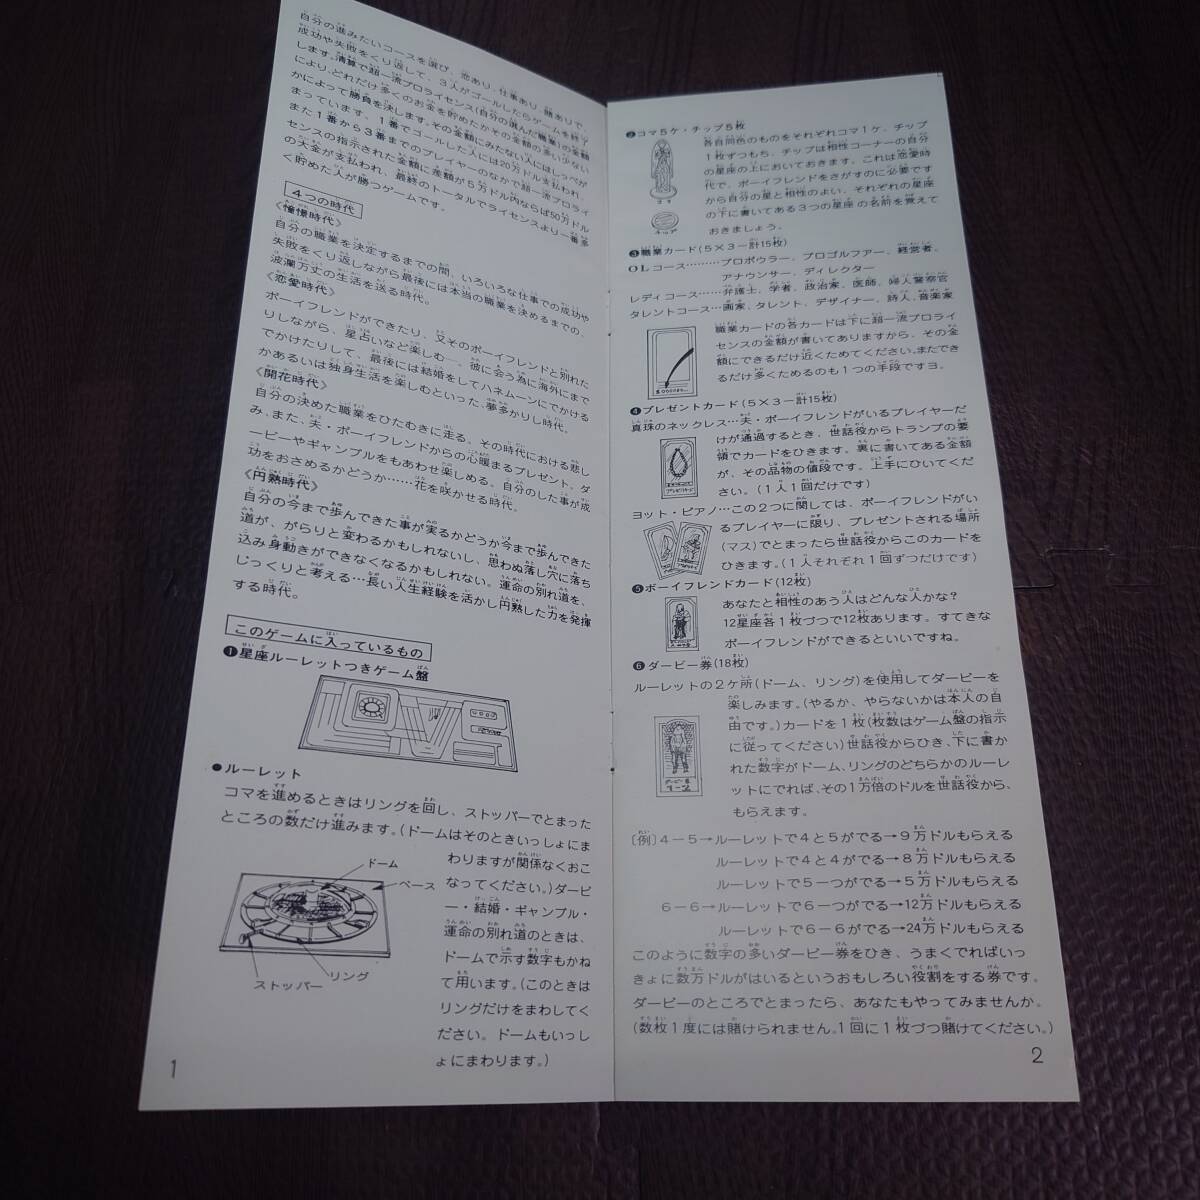 自分の進みたいコースを選び、恋あり、仕事あり、賭ありで、
成功や失敗をくり返して、3人がゴールしたらゲームを終了
します。清算で超一流プロライセンス(自分の選んだ職業)の金額
により、どれだけ多くのお金を貯めたかその金額の多い少ない
かによって勝負を決します。その金額にみたない人にはしっぺが
まっています。1番でゴールした人には20万ドル支払われ、
また1番から3番までのプレイヤーのなかで超一流プロライ
センスの指示された金額に差額が5万ドル内ならば50万ドル
の大金が支払われ、最終のトータルでライセンスより一番多
く貯めた人が勝つゲームです。
4つの時代
《憧憬時代》
自分の職業を決定するまでの間、いろいろな仕事での成功や
失敗をくり返しながら最後には本当の職業を決めるまでの、
波瀾万丈の生活を送る時代。
《恋愛時代》
ボーイフレンドができたり、又そのボーイフレンドと別れた
りしながら、星占いなど楽しむ――、彼に会う為に海外にまで
でかけたりして、最後には結婚をしてハネムーンにでかける
かあるいは独身生活を楽しむといった、夢多かりし時代。
《開花時代》
自分の決めた職業をひたむきに走る。その時代における悲し
み、また、夫・ボーイフレンドからの心暖まるプレゼント、ダ
ービーやギャンブルをもあわせ楽しめる。自分のした事が成
功をおさめるかどうか……花を咲かせる時代。
《円熟時代》
自分の今まで歩んできた事が実るかどうか今まで歩んできた
道が、がらりと変わるかもしれないし、思わぬ落し穴に落ち
込み身動きができなくなるかもしれない。運命の別れ道を、
じっくりと考える…長い人生経験を活かし円熟した力を発揮
する時代。
このゲームに入っているもの
❶星座ルーレットつきゲーム盤
●ルーレット
コマを進めるときはリングを回し、ストッパーでとまった
ところの数だけ進みます。(ドームはそのときいっしょにま
わりますが関係なくおこ
なってください。)ダービ
ー・結婚・ギャンブル・
運命の別れ道のときは、
ドームで示す数字もかね
て用います。(このときは
リングだけをまわしてく
ださい。ドームもいっし
ょにまわります。)
ドーム
ベース
リング
ストッパー
1
❷コマ5ケ・チップ5枚
各自同色のものをそれぞれコマ1ケ、チップ
1枚ずつもち、チップは相性コーナーの自分
の星座の上においておきます。これは恋愛時
代で、ボーイフレンドをさがすのに必要です
から自分の星と相性のよい、それぞれの星座
の下に書いてある3つの星座の名前を覚えて
おきましょう。
コマ
チップ
❸職業カード(5×3―計15枚)
OLコース………プロボウラー、プロゴルファー、経営者、
アナウンサー、ディレクター
レディコース……弁護士、学者、政治家、医師、婦人警察官
タレントコース…画家、タレント、デザイナー、詩人、音楽家
職業カードの各カードは下に超一流プロライ
センスの金額が書いてありますから、その金
額にできるだけ近くためてください。またでき
るだけ多くためるのも1つの手段ですヨ。
❹プレゼントカード(5×3―計15枚)
真珠のネックレス…夫・ボーイフレンドがいるプレイヤーだ
けが通過するとき、世話役からトランプの要
領でカードをひきます。裏に書いてある金額
が、その品物の値段です。上手にひいてくだ
さい。(1人1回だけです)
ヨット・ピアノ…この2つに関しては、ボーイフレンドがい
るプレイヤーに限り、プレゼントされる場所
(マス)でとまったら世話役からこのカードを
ひきます。(1人それぞれ1回ずつだけです)
❺ボーイフレンドカード(12枚)
あなたと相性のあう人はどんな人かな?
12星座各1枚づつで12枚あります。すてきな
ボーイフレンドができるといいですね。
❻ダービー券(18枚)
ルーレットの2ケ所(ドーム、リング)を使用してダービーを
楽しみます。(やるか、やらないかは本人の自
由です。)カードを1枚(枚数はゲーム盤の指示
に従ってください)世話役からひき、下に書か
れた数字がドーム、リングのどちらかのルーレ
ットにでれば、その1万倍のドルを世話役から、
もらえます。
ダービー券
1-2
〔例〕4－5→ルーレットで4と5がでる→9万ドルもらえる
ルーレットで4と4がでる→8万ドルもらえる
ルーレットで5一つがでる→5万ドルもらえる
6－6→ルーレットで6一つがでる→12万ドルもらえる
ルーレットで6－6がでる→24万ドルもらえる
このように数字の多いダービー券をひき、うまくでればいっ
きょに数万ドルがはいるというおもしろい役割をする券です。
ダービーのところでとまったら、あなたもやってみませんか。
(数枚1度には賭けられません。1回に1枚づつ賭けてください。)
2